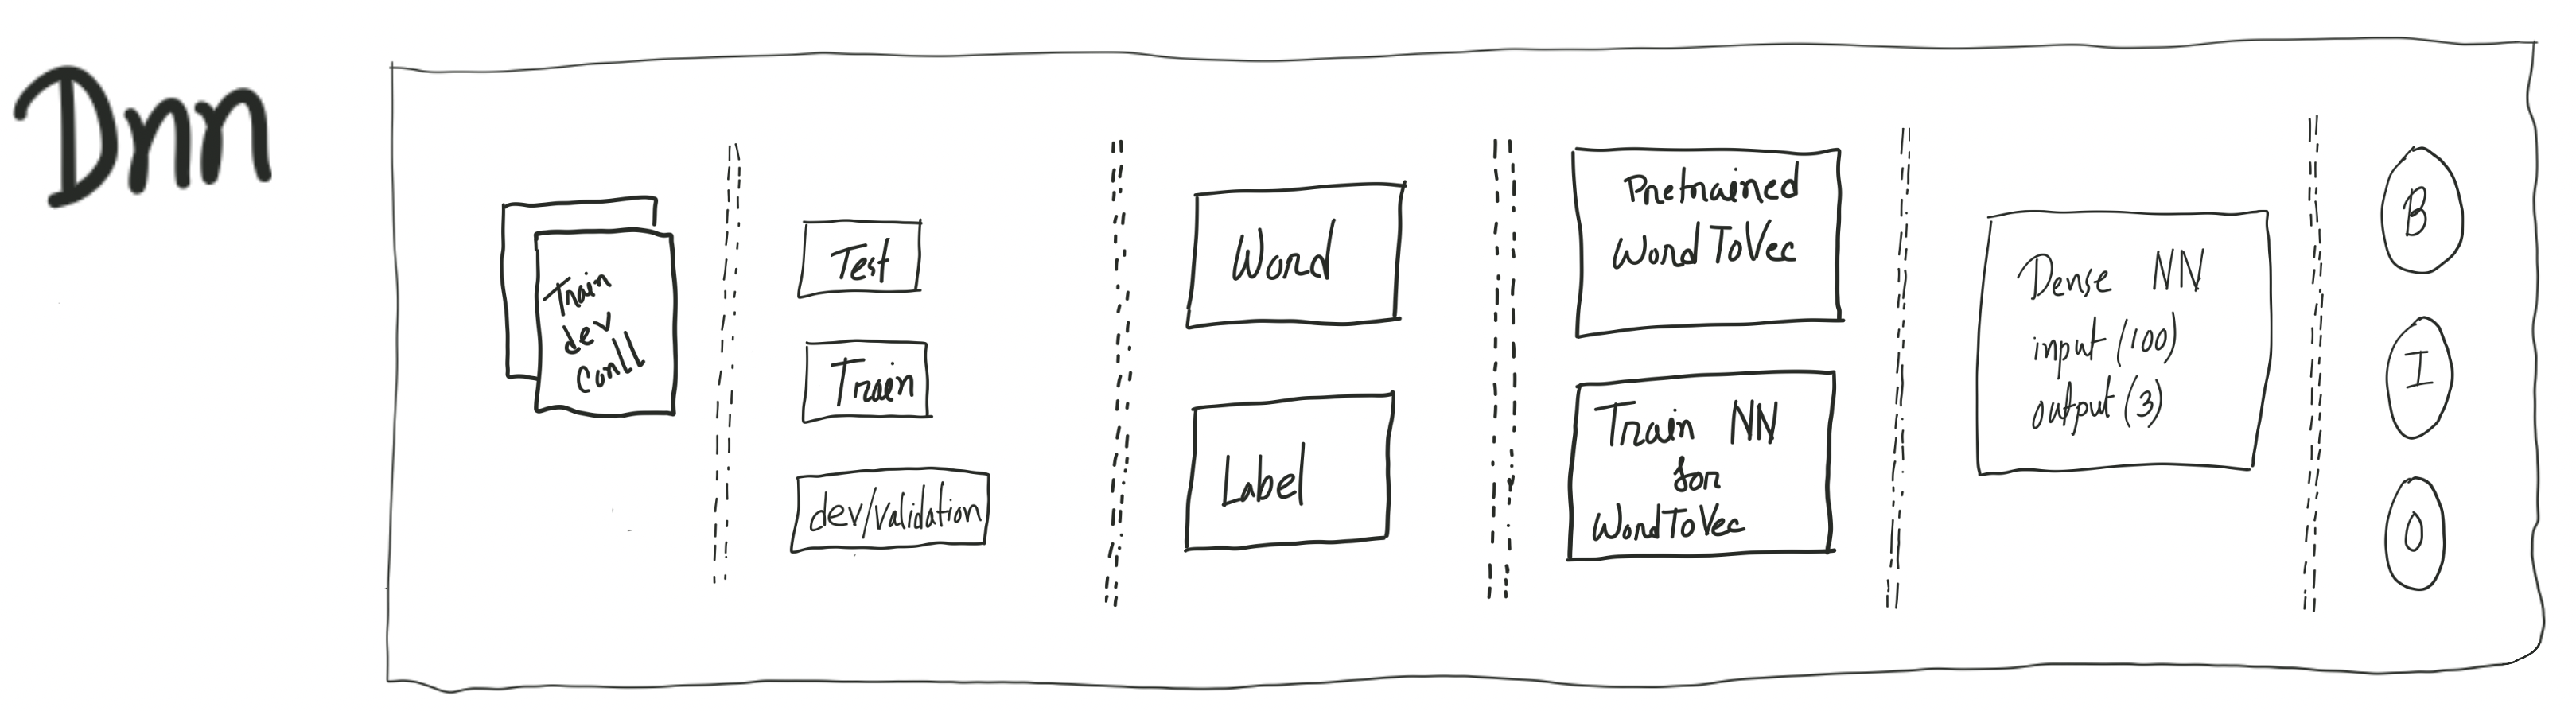 Dnn
Train
dev
Conll
Test
Train
dev/validation
Word
Label
Pretrained
WordToVec
Train NN
for
WordToVec
Dense NN
input (100)
output (3)
B
I
O